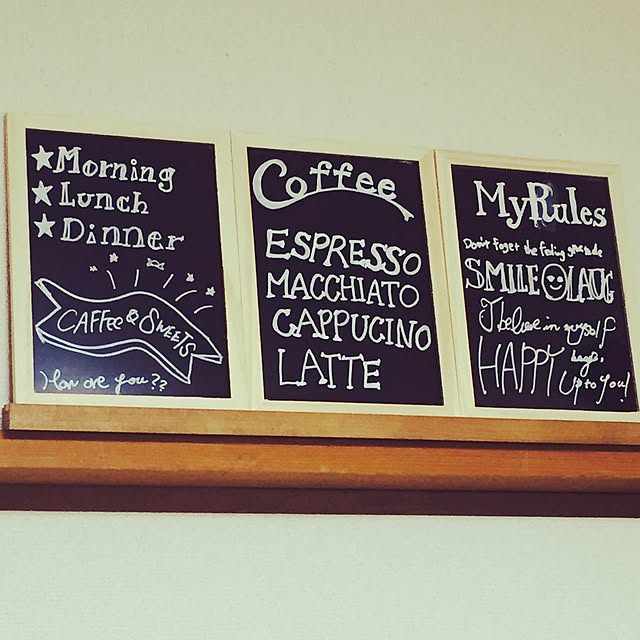 ★Morning
★Lunch
★Dinner
CAFFee & SWEETS
How are you??
Coffee
ESPRESSO
MACCHIATO
CAPPUCINO
LATTE
My Rules
Don't foget the feeling
SMILE LAUG
I believe in myself
HAPPY
Up to You!